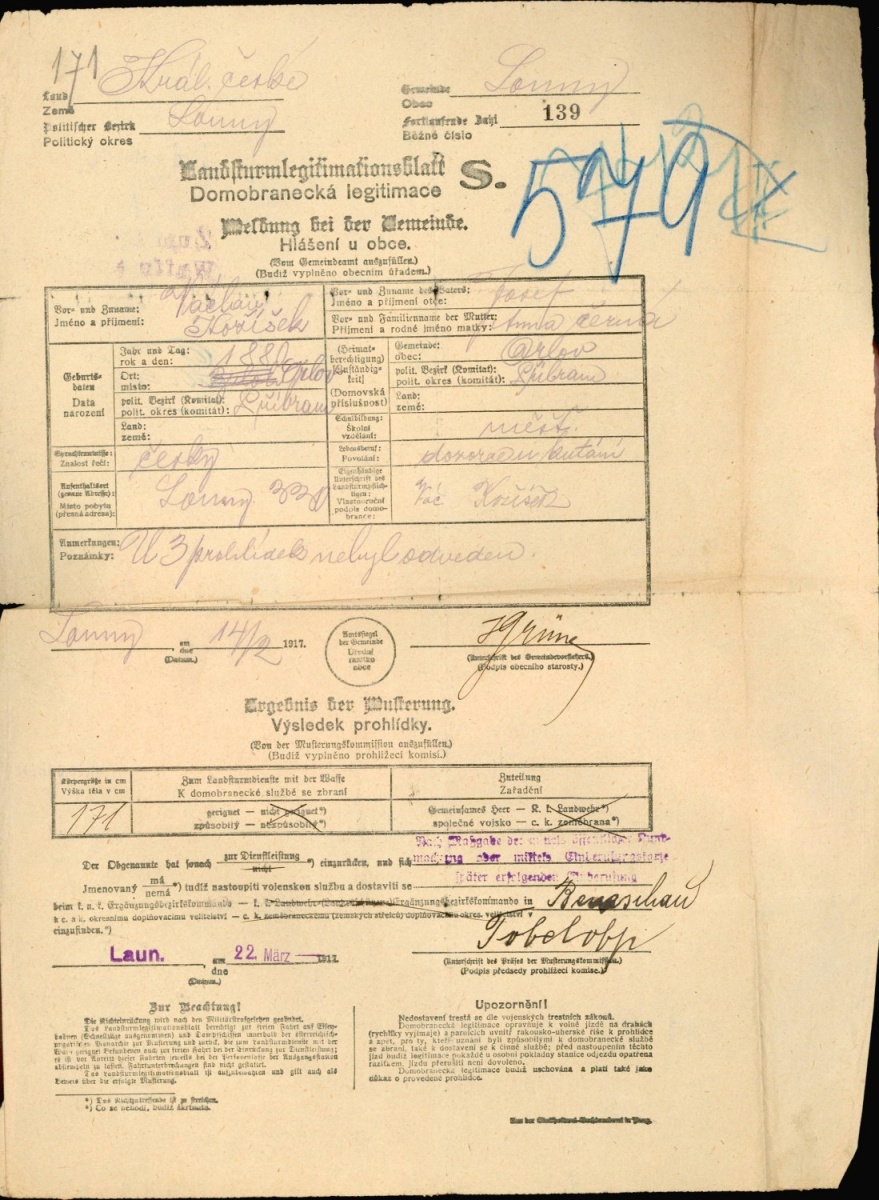 171
Land Král. české
Země
Gemeinde Louny
Obec
Politischer Bezirk Louny
Politický okres
Fortlaufende Zahl 139
Běžné číslo
Landsturmlegitimationsblatt S. 579
Domobranecká legitimace
Meldung bei der Gemeinde.
Hlášení u obce.
(Vom Gemeindeamt auszufüllen.)
(Budiž vyplněno obecním úřadem.)
Vor- und Zuname: Václav
Jméno a příjmení: Kožíšek
Vor- und Zuname des Vaters: Josef
Jméno a příjmení otce:
Vor- und Familienname der Mutter: Anna Černá
Příjmení a rodné jméno matky:
Geburtsdaten
Data narození
Jahr und Tag:
rok a den:
Ort: Orlov
místo:
polit. Bezirk (Komitat): Příbram
polit. okres (komitát):
Land:
země:
(Heimatberechtigung) (Zuständigkeit)
(Domovská příslušnost)
Gemeinde: Orlov
obec:
polit. Bezirk (Komitat): Příbram
polit. okres (komitát):
Land:
země:
Schulbildung: měšť.
Školní vzdělání:
Sprachkenntnisse: česky
Znalost řečí:
Lebensberuf:
Povolání:
Aufenthaltsort (genaue Adresse): Louny
Místo pobytu (přesná adresa):
Eigenhändige Unterschrift des Landsturmpflichtigen: Vác Kožíšek
Vlastnoruční podpis domobrance:
Anmerkungen: U 3 prohlídek nebyl odveden.
Poznámky:
Louny am 14/2 1917.
dne
(Datum.)
Amtssiegel der Gemeinde
Úřední razítko obce
(Unterschrift des Gemeindevorstehers.)
(Podpis obecního starosty.)
Ergebnis der Musterung.
Výsledek prohlídky.
(Von der Musterungskommission auszufüllen.)
(Budiž vyplněno prohlížecí komisí.)
Körpergröße in cm
Výška těla v cm
Zum Landsturmdienste mit der Waffe
K domobranecké službě se zbraní
Zuteilung
Zařadění
171
geeignet — nicht geeignet*)
způsobilý — nezpůsobilý*)
Gemeinsames Heer — K. k. Landwehr*)
společné vojsko — c. k. zeměbrana*)
Nach Maßgabe der mittels öffentlicher Kund-
machung oder mittels Einberufungskarte
später erfolgenden Einberufung
Der Obgenannte hat sonach zur Dienstleistung nicht *) einzurücken, und sich
Jmenovaný má nemá *) tudíž nastoupiti volenskou službu a dostaviti se
beim k. u. k. Ergänzungsbezirkskommando — k. k. Landwehr- Ergänzungsbezirkskommando in Beneschau
k c. a k. okresnímu doplňovacímu velitelství — c. k. zeměbraneckému (zemských střelců) doplňovacímu okres. velitelství v
einzufinden.*)
Laun. am 22. März 1917.
dne
(Datum.)
(Unterschrift des Präses der Musterungskommission.)
(Podpis předsedy prohlížecí komise.)
Zur Beachtung!
Die Nichteinrückung wird nach den Militärstrafgesetzen geahndet.
Das Landsturmlegitimationsblatt berechtigt zur freien Fahrt auf Eisen-
bahnen (Schnellzüge ausgenommen) und Dampfschiffen innerhalb der österreichisch-
ungarischen Monarchie zur Musterung und zurück, die zum Landsturmdienste mit der
Waffe geeignet Befundenen auch zur freien Fahrt bei der Einrückung zur Dienstleistung; es
ist vor Antritt dieser Fahrten jeweils bei der Personenkasse der Ausgangsstation
abstempeln zu lassen. Fahrtunterbrechungen sind nicht gestattet.
Das Landsturmlegitimationsblatt ist aufzubewahren und gilt auch als
Beweis über die erfolgte Musterung.
*) Das Nichtzutreffende ist zu streichen.
*) Co se nehodí, budiž škrtnuto.
Upozornění!
Nedostavení trestá se dle vojenských trestních zákonů.
Domobranecká legitimace opravňuje k volné jízdě na drahách
(rychlíky vyjímaje) a parolodích uvnitř rakousko-uherské říše k prohlídce
a zpět, pro ty, kteří uznáni byli způsobilými k domobranecké službě
se zbraní, také k dostavení se k činné službě; před nastoupením těchto
jízd budiž legitimace pokaždé u osobní pokladny stanice odjezdu opatřena
razítkem. Jízdu přerušiti není dovoleno.
Domobranecká legitimace budiž uschována a platí také jako
důkaz o provedené prohlídce.
Aus der Statthalterei-Buchdruckerei in Prag.